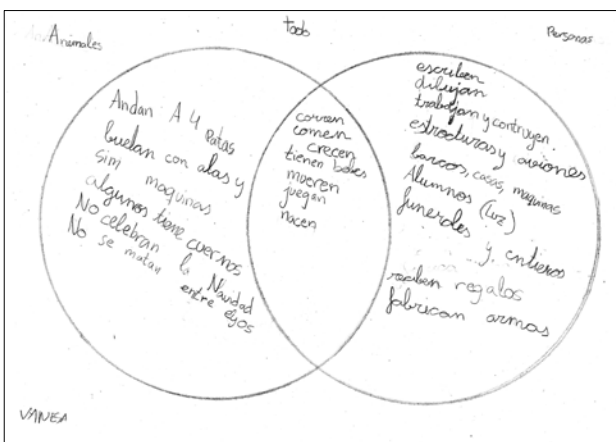 Animales
todo
Personas
Andan A 4 patas
buelan con alas y
sini maquinas
algunos tiene cuernos
No celebran la Navidad
No se matan entre ellos
corren
comen
crecen
tienen bebes
mueren
juegan
nacen
escriben
dibujan
trabajan y contruyen.
estroduras y aviones
barcos, casas, maquinas
Alumnos (luz)
funeroles y entieros
reciben regalos
fabrican armas
VANESA